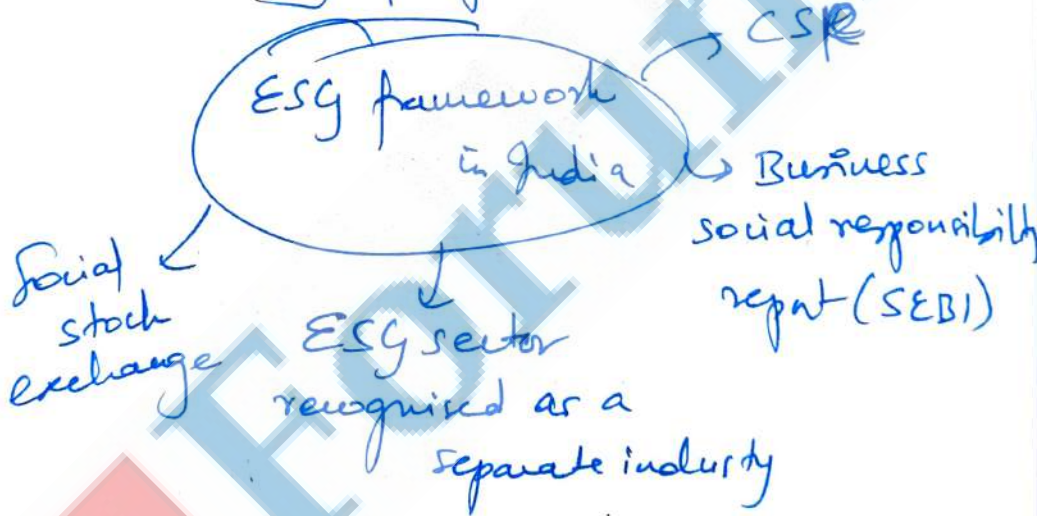 CSR
ESG framework
in India
Business
social responsibility
report (SEBI)
Social
stock
exchange
ESG sector
recognised as a
separate industy
Forum